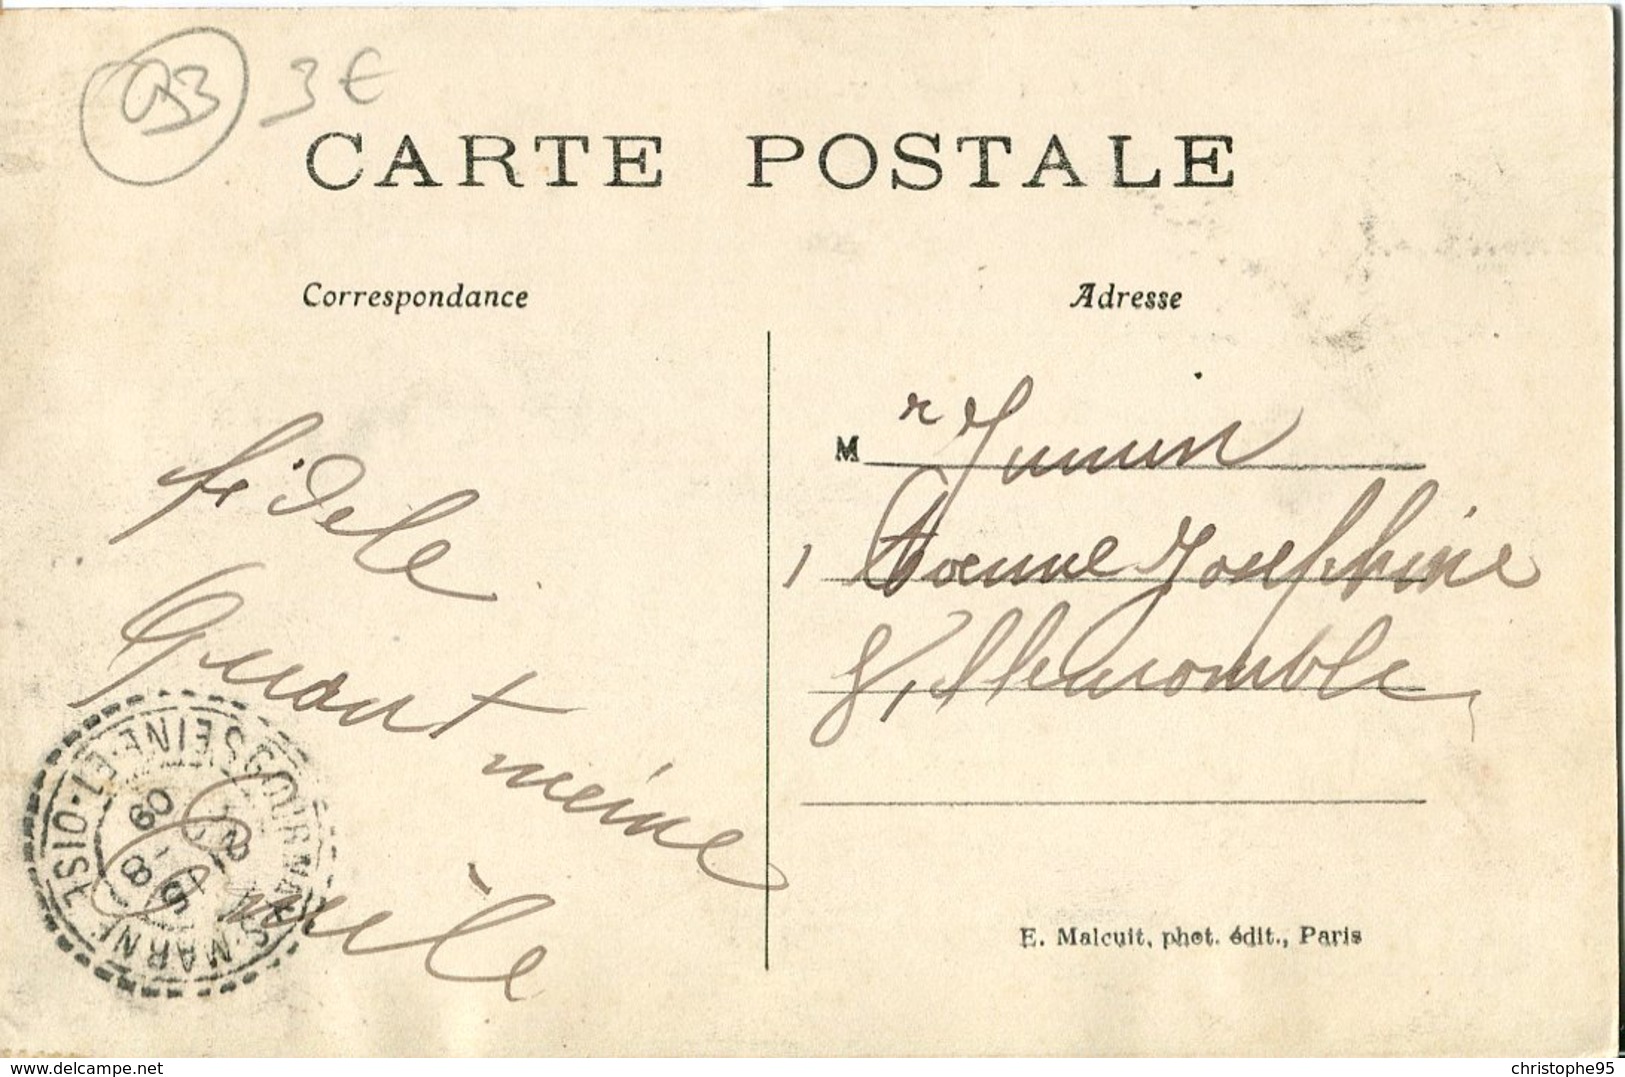 93 3€
CARTE POSTALE
Correspondance
Adresse
fidele
Quant meine
Emile
Mr Junin
1 Avenue Josephine
Villemomble
GOURNAY-S-MARNE
SEINE-ET-OISE
8
09
E. Malcuit, phot. édit., Paris
www.delcampe.net
christophe95